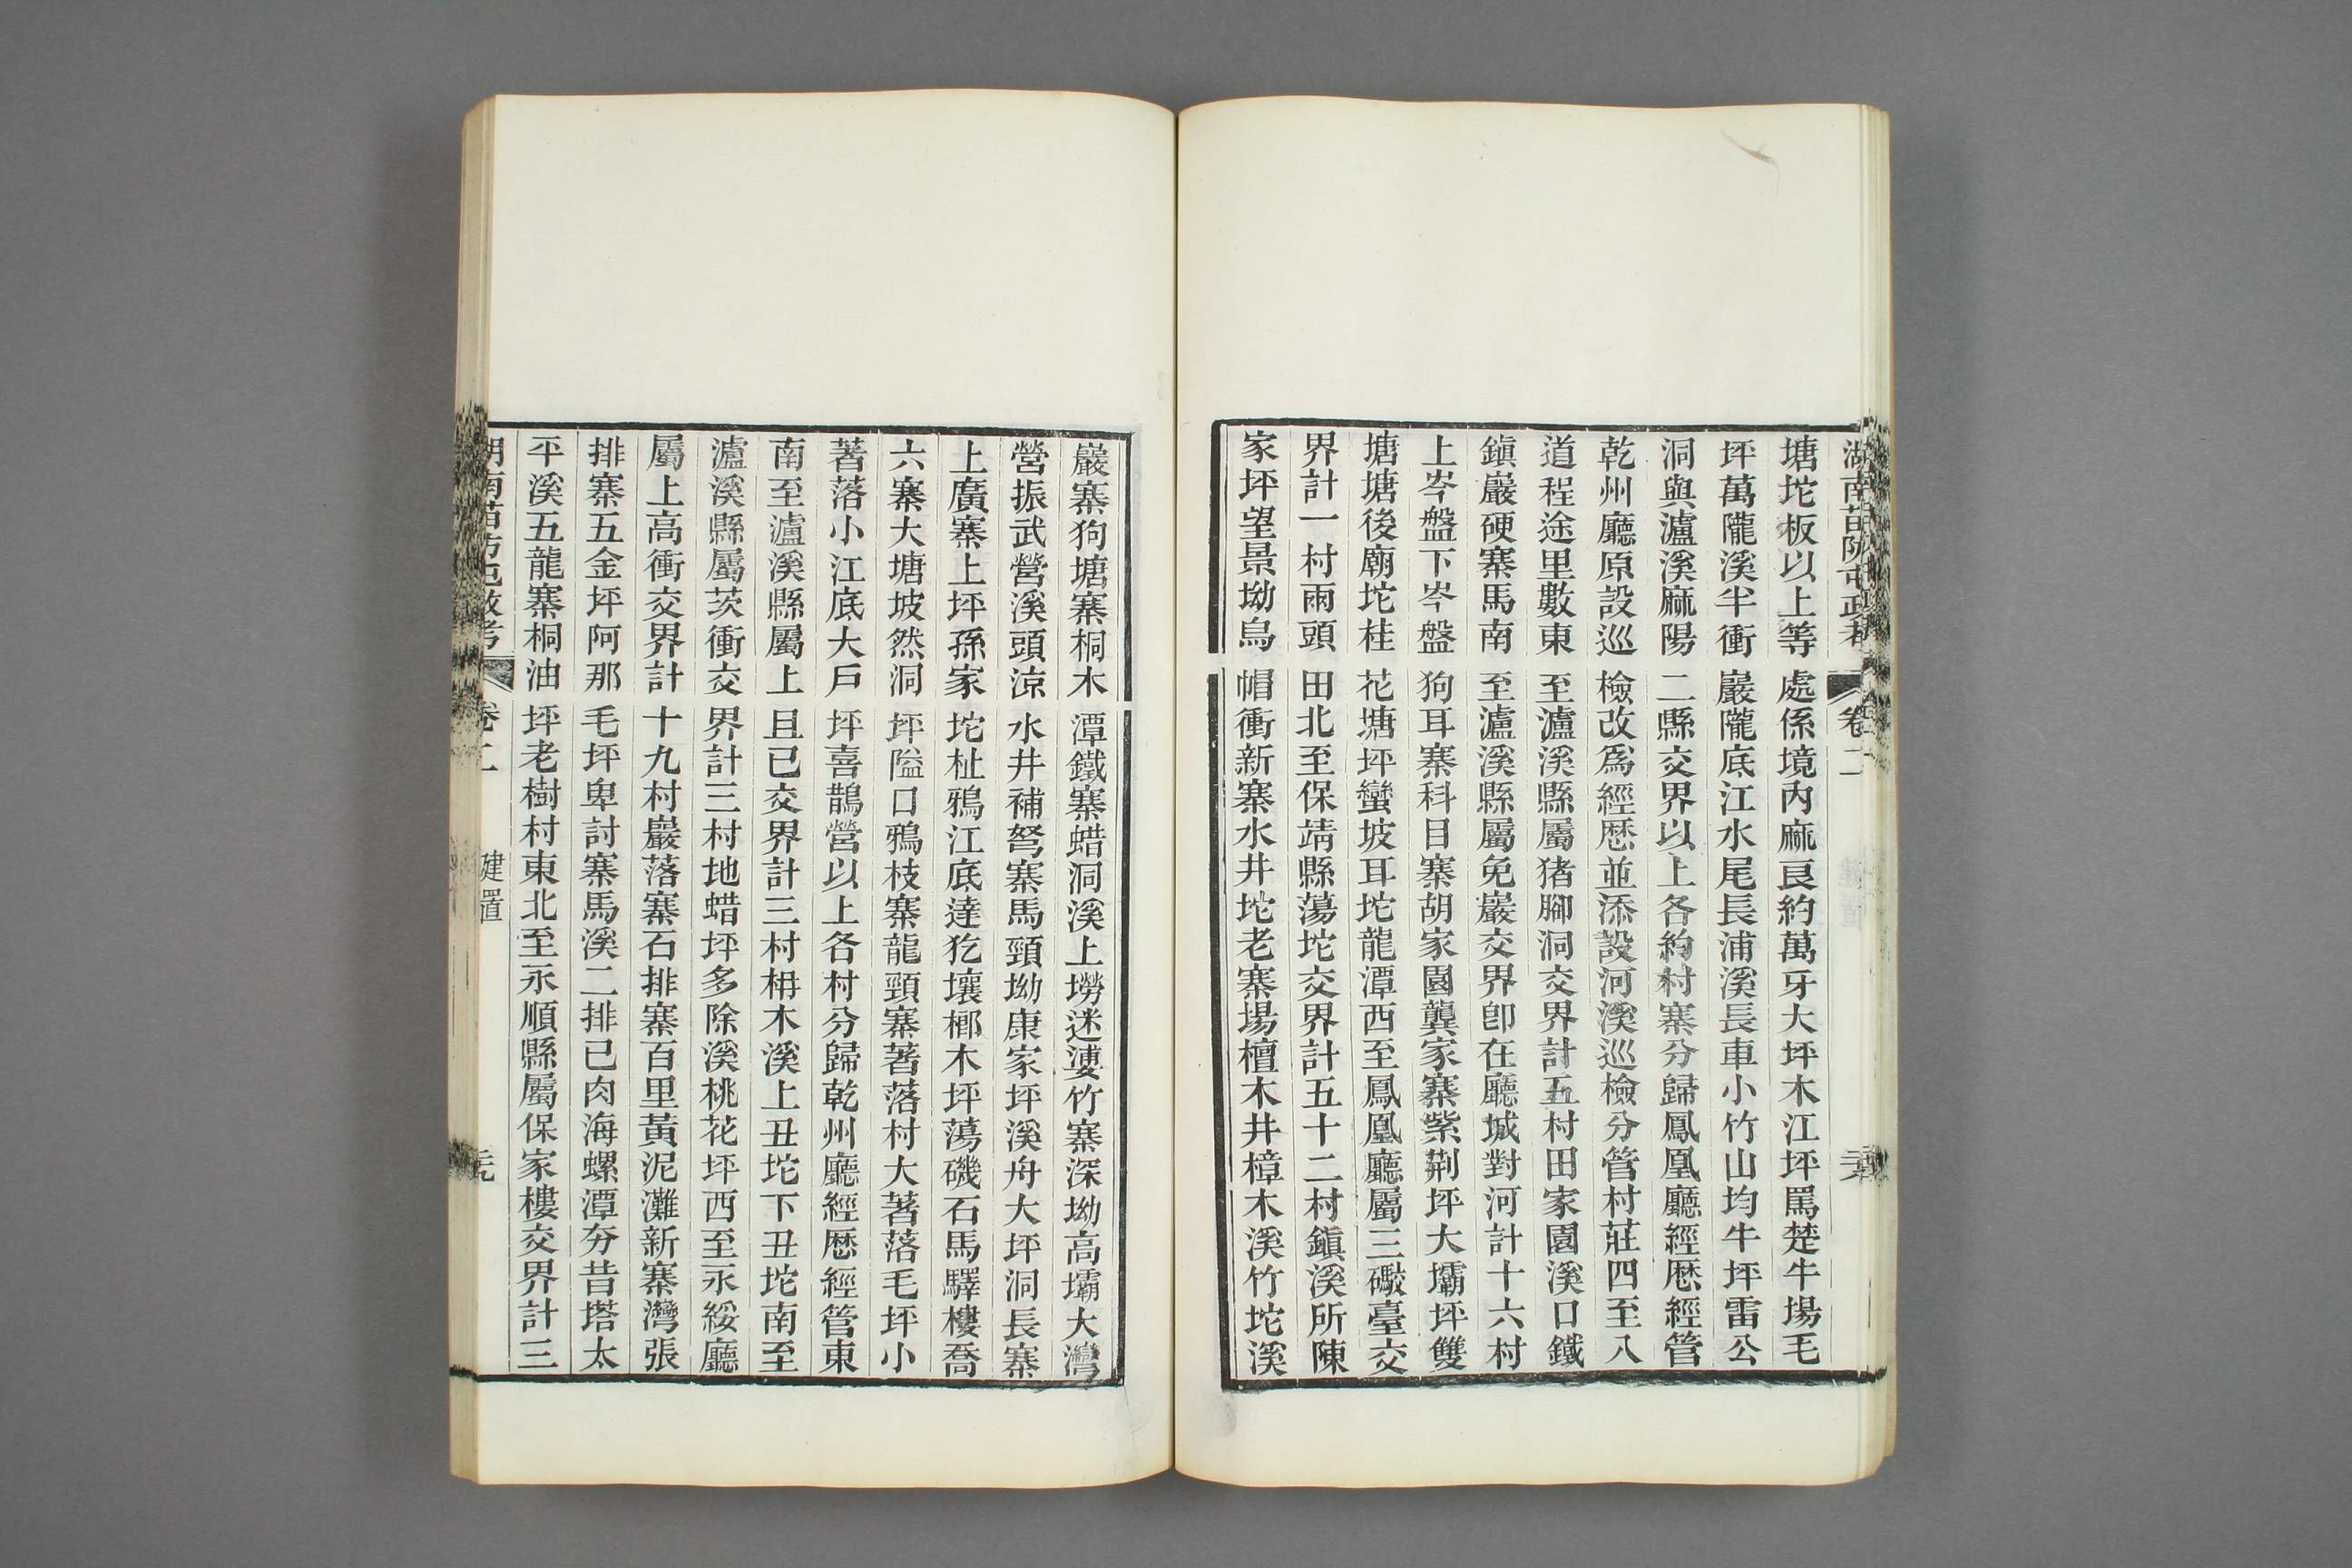 湖南苗防屯政考 卷二
塘坨板以上等處係境內麻良約萬牙大坪木江坪罵楚牛場毛
坪萬隴溪半衝巖隴底江水尾長浦溪長車小竹山均牛坪雷公
洞與瀘溪麻陽二縣交界以上各約村寨分歸鳳凰廳經歷經管
乾州廳原設巡檢改爲經歷並添設河溪巡檢分管村莊四至八
道程途里數東至瀘溪縣屬猪腳洞交界計五村田家園溪口鐵
鎮巖硬寨馬南至瀘溪縣屬免巖交界卽在廳城對河計十六村
上岑盤下岑盤狗耳寨科目寨胡家園龔家寨紫荆坪大壩坪雙
塘塘後廟坨桂花塘坪蠻坡耳坨龍潭西至鳳凰廳屬三礮臺交
界計一村雨頭田北至保靖縣蕩坨交界計五十二村鎮溪所陳
家坪望景坳烏帽衝新寨水井坨老寨場檀木井樟木溪竹坨溪
巖寨狗塘寨桐木潭鐵寨蜡洞溪上撈迷婆竹寨深坳高壩大灣
營振武營溪頭涼水井補弩寨馬頸坳康家坪溪舟大坪洞長寨
上廣寨上坪孫家坨杫鴉江底達犵壤榔木坪蕩磯石馬驛樓喬
六寨大塘坡然洞坪隘口鴉枝寨龍頸寨著落村大著落毛坪小
著落小江底大戶坪喜鵲營以上各村分歸乾州廳經歷經管東
南至瀘溪縣屬上且已交界計三村枏木溪上丑坨下丑坨南至
瀘溪縣屬茨衝交界計三村地蜡坪多除溪桃花坪西至永綏廳
屬上高衝交界計十九村巖落寨石排寨百里黃泥灘新寨灣張
排寨五金坪阿那毛坪卑討寨馬溪二排已肉海螺潭夯昔塔太
平溪五龍寨桐油坪老樹村東北至永順縣屬保家樓交界計三
湖南苗防屯政考 卷二 建置